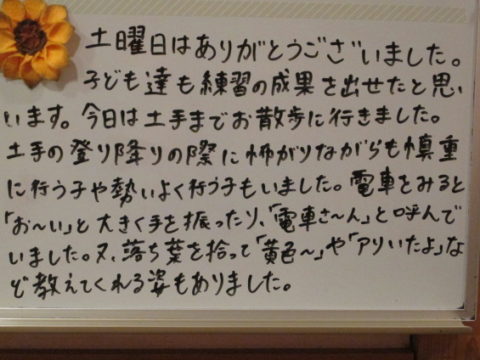 土曜日はありがとうございました。
子ども達も練習の成果を出せたと思い
います。今日は土手までお散歩に行きました。
土手の登り降りの際に怖がりながらも慎重
に行う子や勢いよく行う子もいました。電車をみると
「お〜い」と大きく手を振ったり、「電車さ〜ん」と呼んで
いました。又、落ち葉を拾って「黄色〜」や「アリいたよ」な
ど教えてくれる姿もありました。